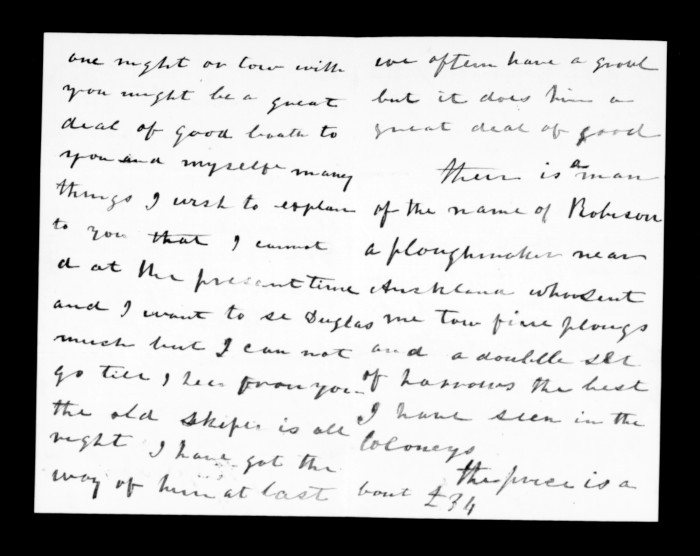 one night or tow with
you might be a great
deal of good boath to
you and myselfe maney
things I wish to explane
to you that I cannot
d at the present time
and I want to se Duglas
much but I can not
go till I hear from you
the old skiper is all
right I have got the
way of him at last
we oftern have a groul
but it does him a
great deal of good
their is a man
of the name of Robison
a ploughmaker near
Auckland whoo sent
me tow fine plougs
and a doublle set
of harrows the best
I have seen in the
Coloneys
the price is a
bout £34